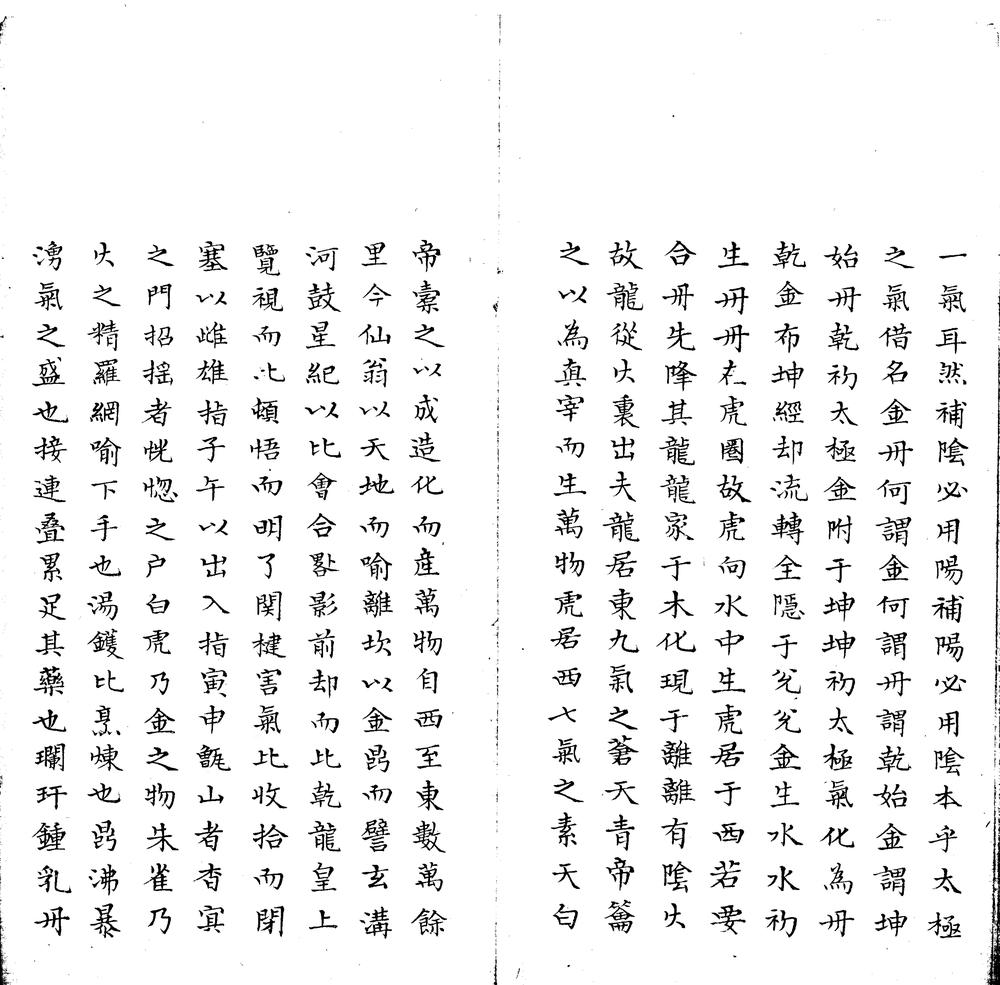 一氣耳然補陰必用陽補陽必用陰本乎太極
之氣借名金丹何謂金何謂丹謂乾始金謂坤
始丹乾初太極金附于坤坤初太極氣化為丹
乾金布坤經却流轉全隱于兊兊金生水水初
生丹丹在虎圈故虎向水中生虎居于西若要
合丹先降其龍龍家于木化現于離離有陰火
故龍從火裏出夫龍居東九氣之蒼天青帝籥
之以為真宰而生萬物虎居西七氣之素天白
帝橐之以成造化而產萬物自西至東數萬餘
里今仙翁以天地而喻離坎以金鼎而譬玄溝
河鼓星紀以比會合晷影前却而比乾龍皇上
覽視而比頓悟而明了関楗害氣比收拾而閉
塞以雌雄指子午以出入指寅申甑山者杳冥
之門招揺者恍惚之户白虎乃金之物朱雀乃
火之精羅網喻下手也湯鑊比烹煉也鼎沸暴
湧氣之盛也接連叠累足其藥也瓓玕鍾乳丹